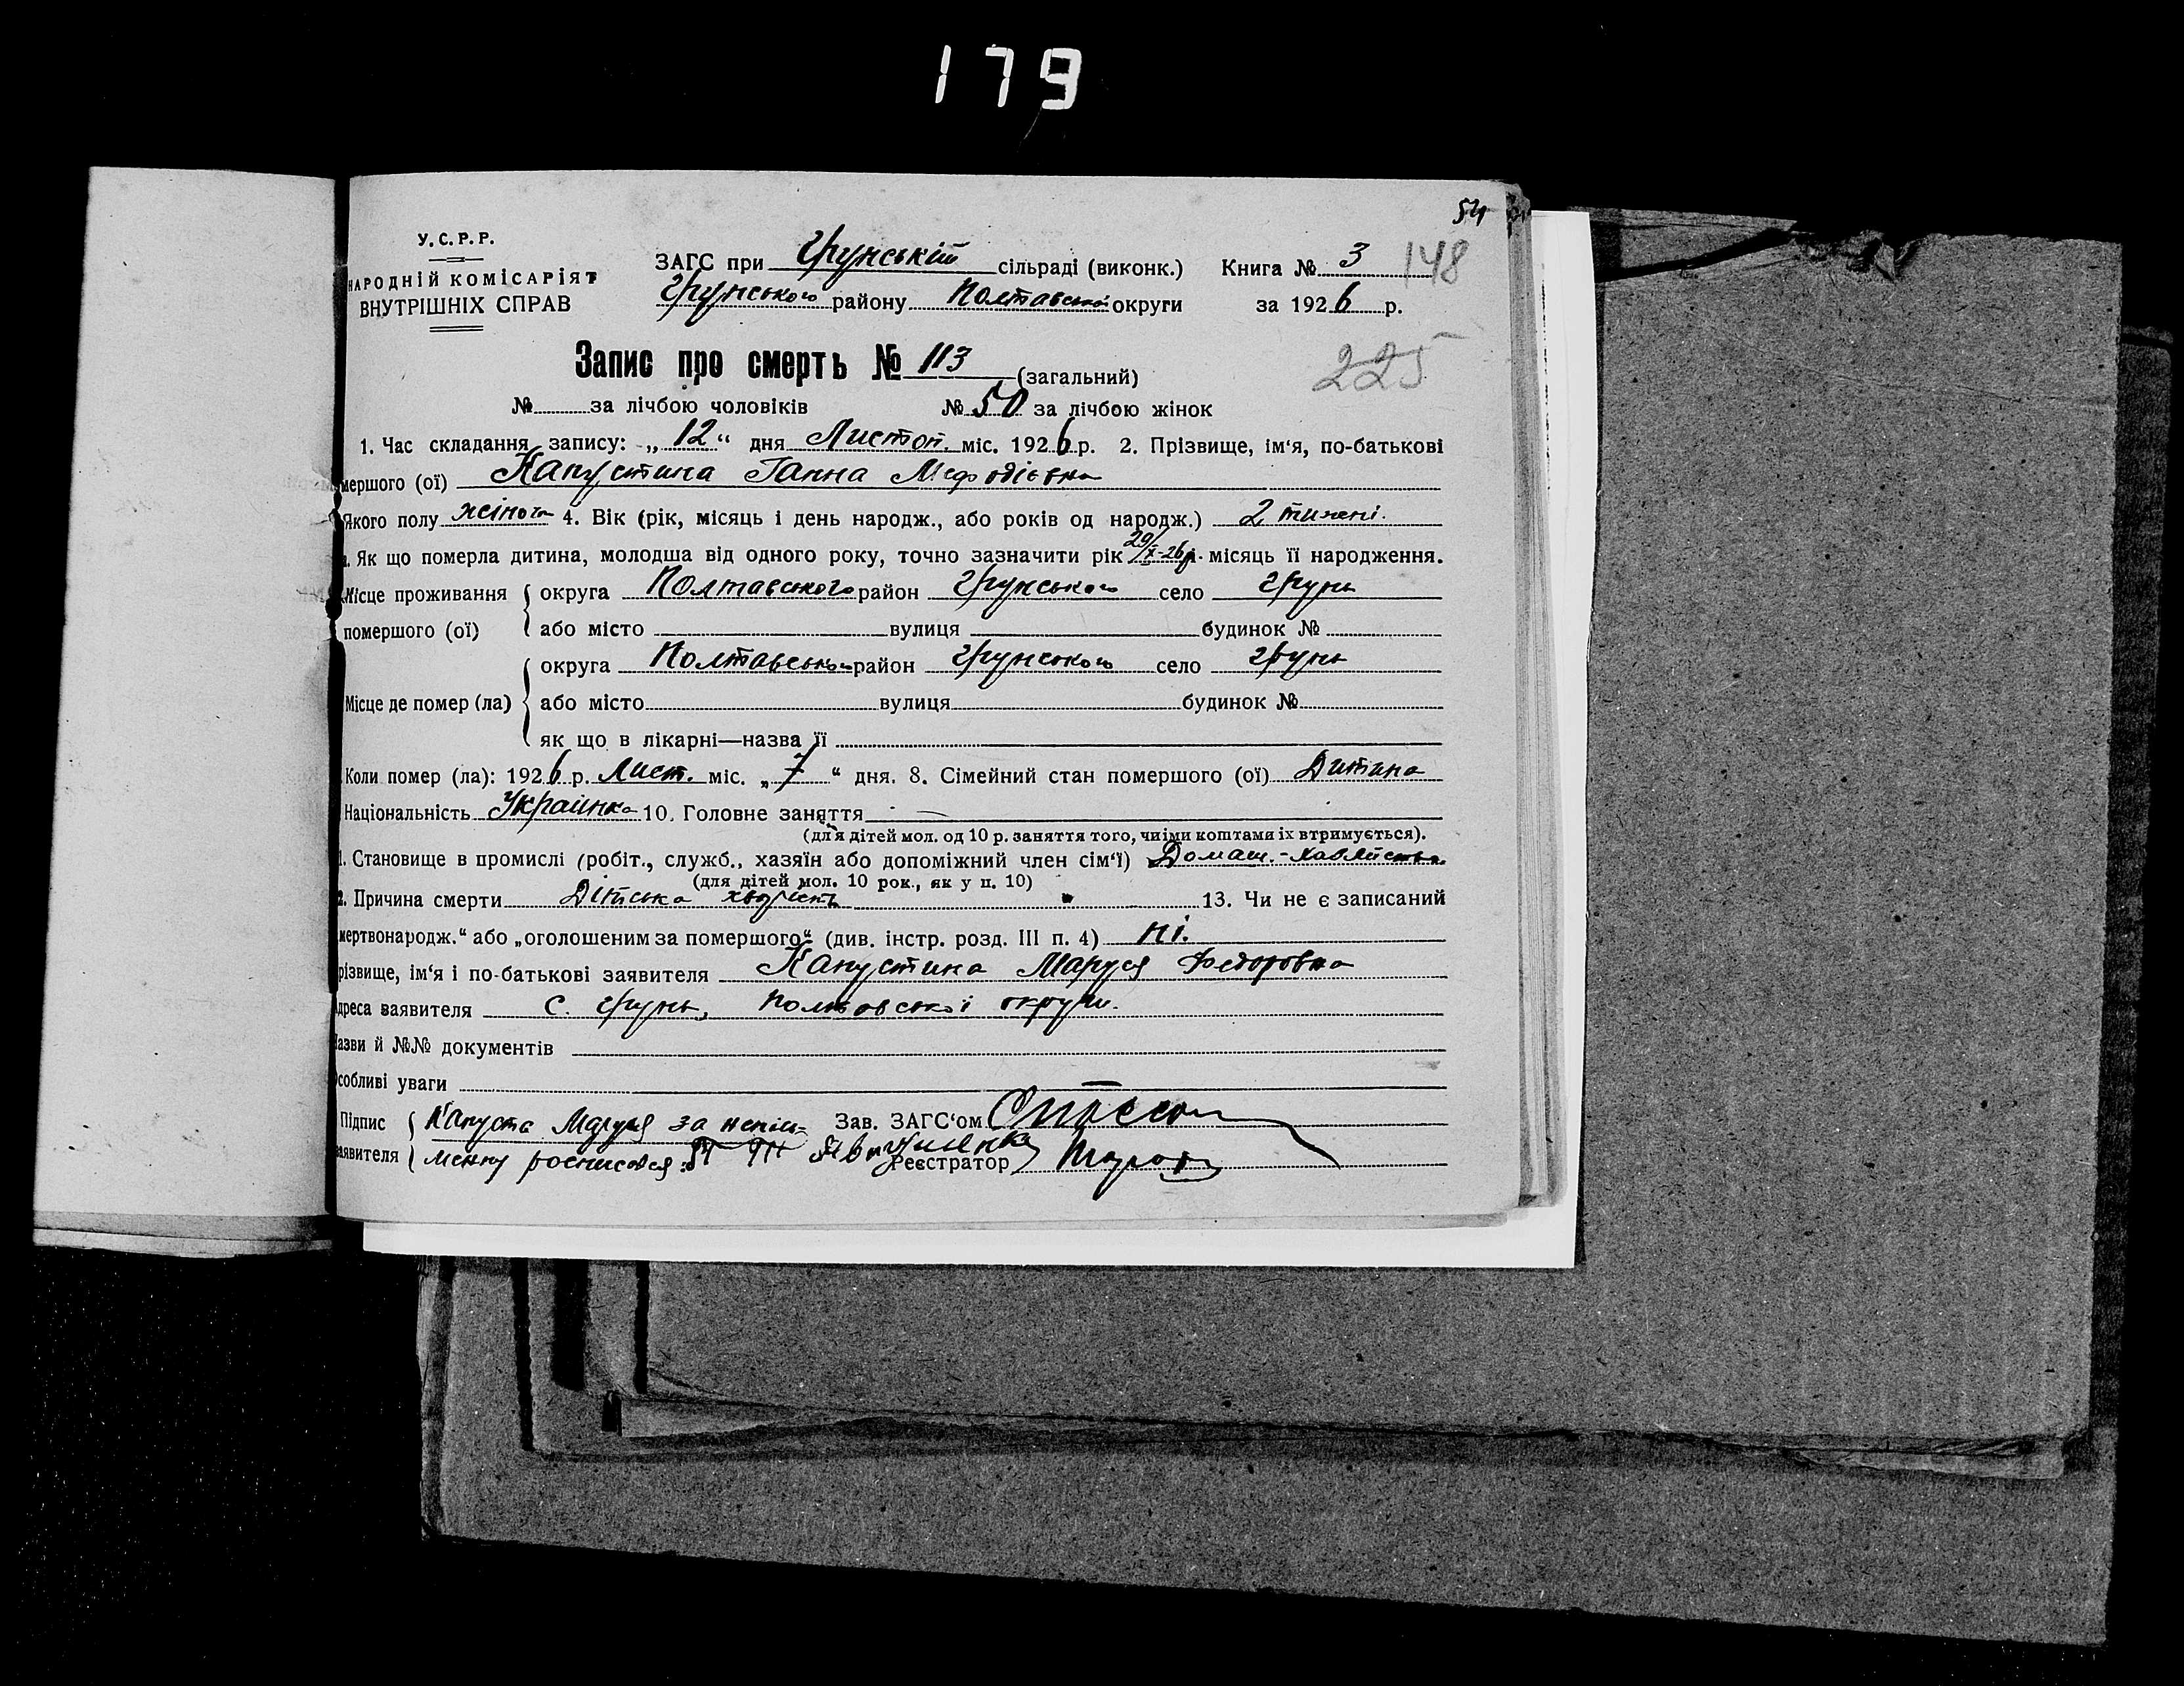 179
54
У.С.Р.Р.
НАРОДНІЙ КОМІСАРІЯТ
ВНУТРІШНІХ СПРАВ
ЗАГС при Грунській сільраді (виконк.) Книга № 3 148
Грунського району Полтавської округи за 1926 р.
Запис про смерть № 113 (загальний)
225
№ за лічбою чоловіків № 50 за лічбою жінок
1. Час складання запису: „12“ дня Листоп. міс. 1926 р. 2. Прізвище, ім‘я, по-батькові
мершого (ої) Капустина Ганна Мефодієвна
Якого полу жіноч. 4. Вік (рік, місяць і день народж., або років од народж.) 2 тижні.
Як що померла дитина, молодша від одного року, точно зазначити рік 29/X-26р. місяць її народження.
Місце проживання округа Полтавського район Грунського село Грунь
помершого (ої) або місто вулиця будинок №
округа Полтавського район Грунського село Грунь
Місце де помер (ла) або місто вулиця будинок №
як що в лікарні—назва її
Коли помер (ла): 1926 р. Лист. міс. „7“ дня. 8. Сімейний стан помершого (ої) Дитина
Національність Украинка 10. Головне заняття —
(для дітей мол. од 10 р. заняття того, чиіми коштами іх втримується).
1. Становище в промислі (робіт., служб., хазяїн або допоміжний член сім‘ї) Домаш.-
(для дітей мол. 10 рок., як у п. 10)
2. Причина смерти Дітська хворість 13. Чи не є записаний
мертвонародж.“ або „оголошеним за помершого“ (див. інстр. розд. III п. 4) ні.
різвище, ім‘я і по-батькові заявителя Капустина Маруся Федоровна
дреса заявителя с. Грунь, Полтавської округи.
азви й №№ документів
собливі уваги —
Підпис Капуста Маруся за непись- Зав. ЗАГС‘ом
заявителя менну росписався
Реєстратор